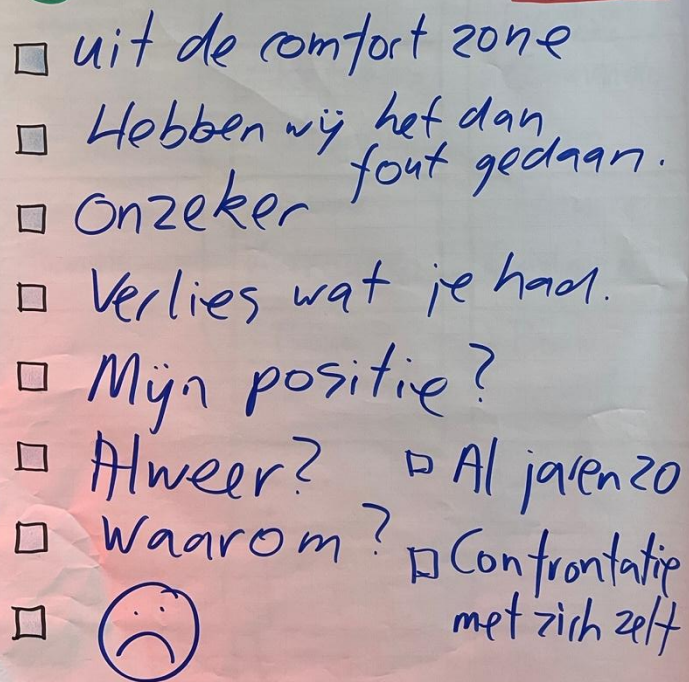 uit de comfort zone
Hebben wij het dan
fout gedaan.
Onzeker
Verlies wat je had.
Mijn positie?
Alweer?
Waarom?
Al jaren zo
Confrontatie
met zich zelf